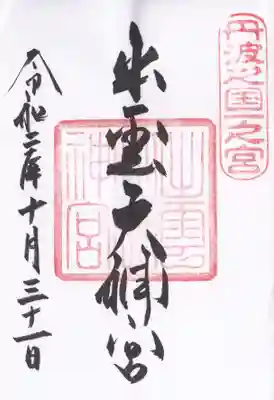 丹波之国一之宮
出雲大神宮
令和二年十月三十一日